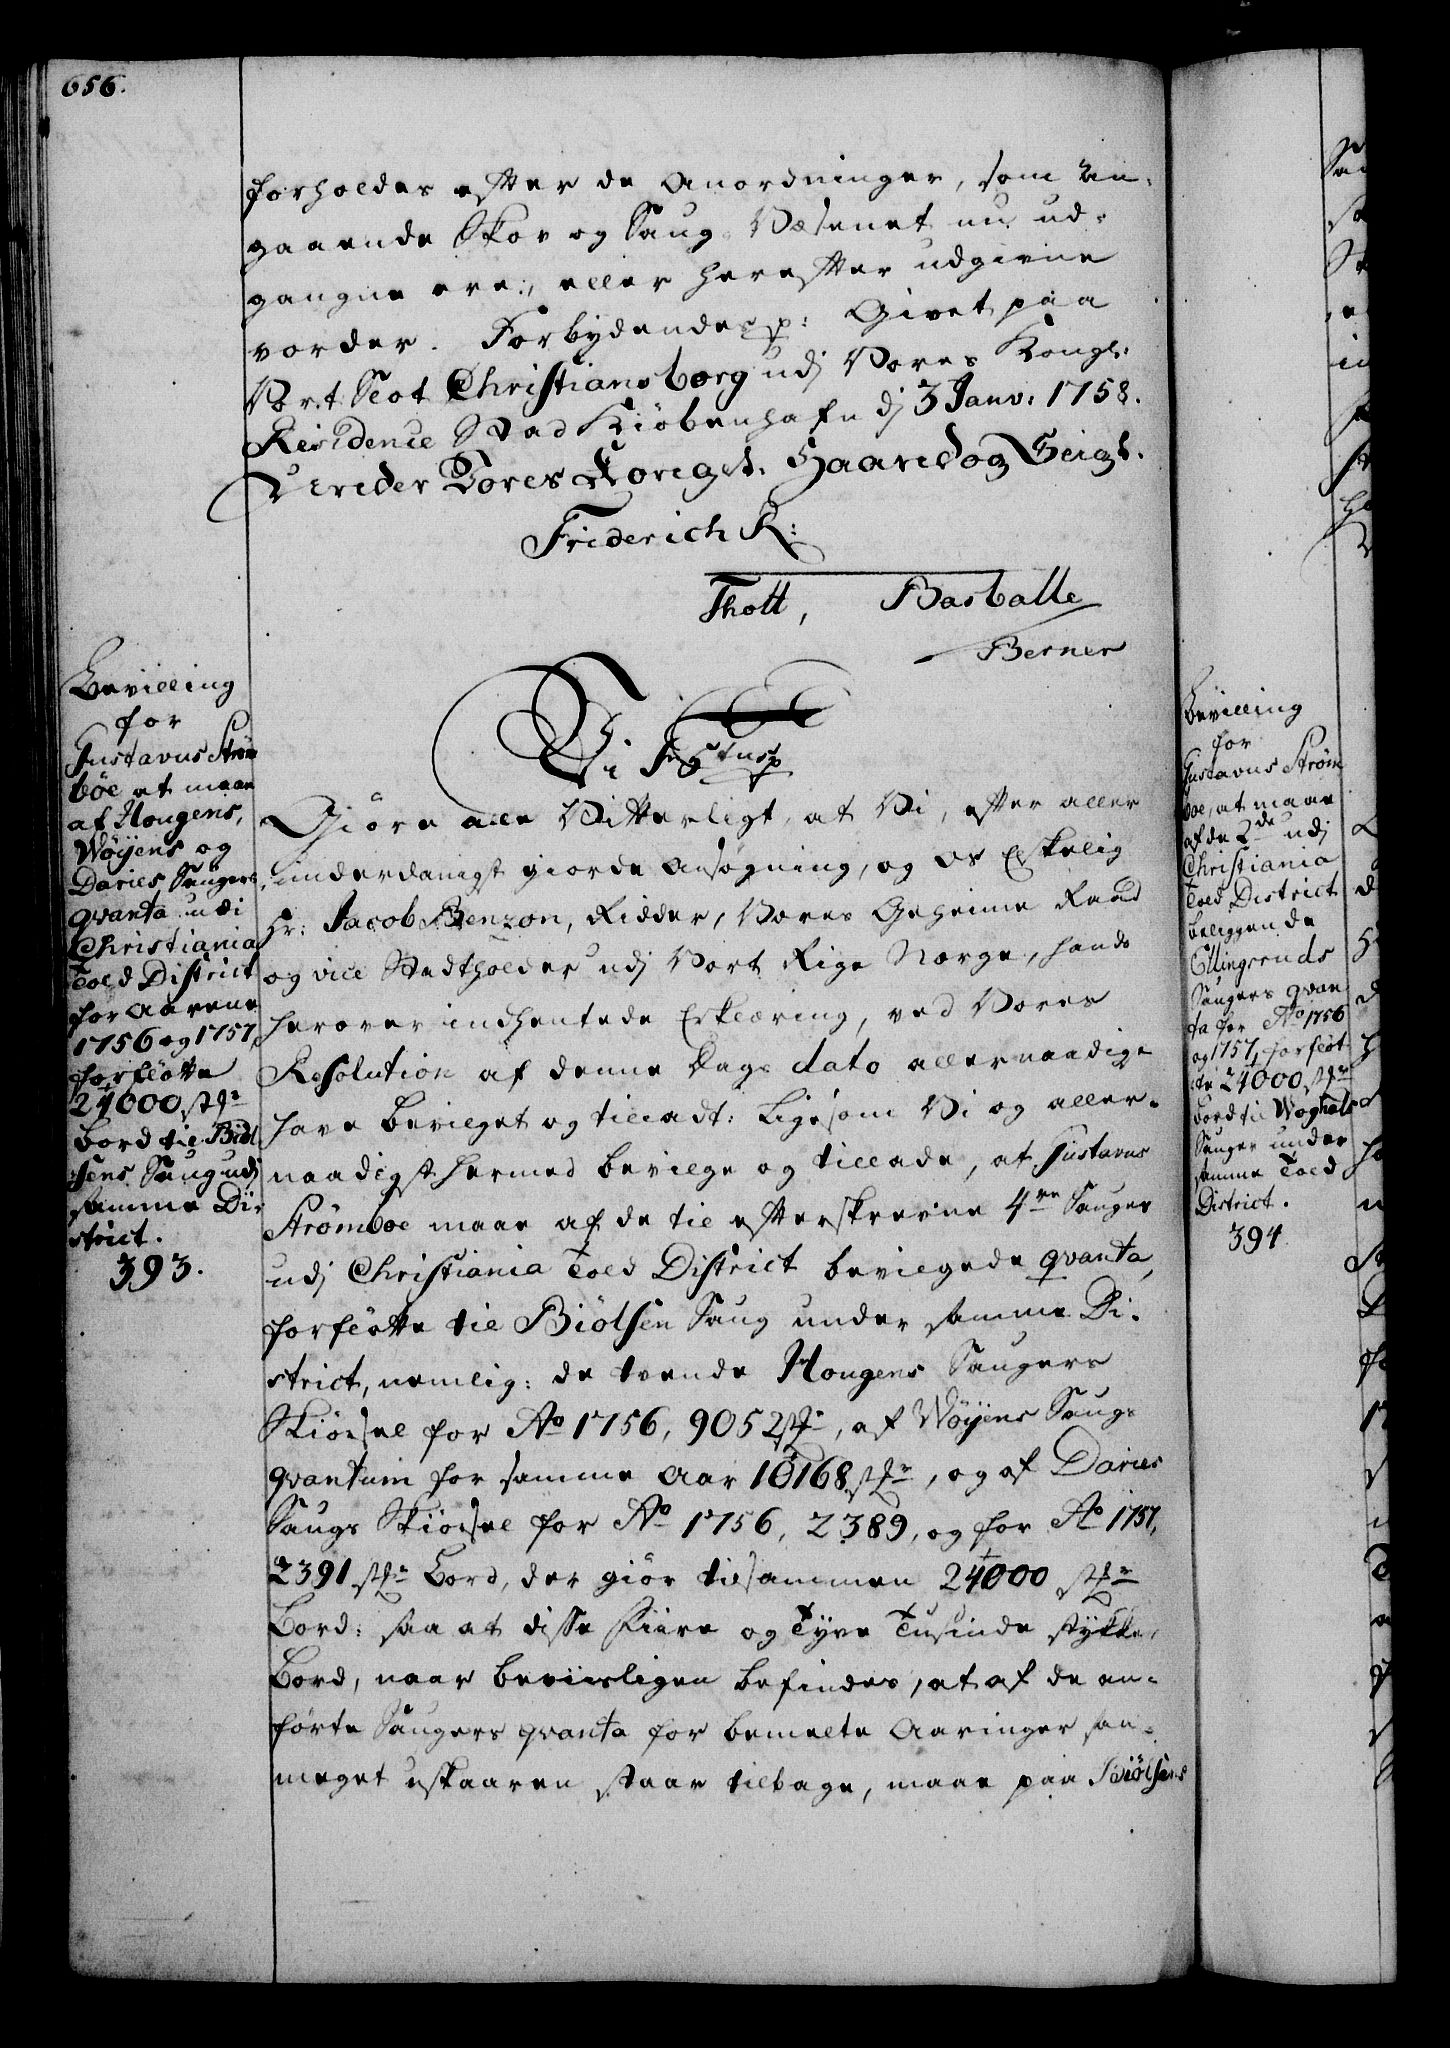 656.
forholdes efter de Anordninger, som an-
gaaende Skov og Saug-Væsenet nu ud-
gangne ere, eller herefter udgivne
vorder. Forbydendes p: Givet paa
Vort Slot Christiansborg udj Vores Kongl:
Residence Stad Kiöbenhafn dj 3 Janv: 1758.
Under Vores Kongel. Haand og Seigl.
Friderich R:
Thott, Barballe
Berner
Bevilling
for
Gustavus Ström
böe at maae
af Hougens,
Wöyens og
Daries Saugers
qvanta udi
Christiania
Told District
for Aarene
1756 og 1757,
forflötte
24000 stkr
Bord til Biöl
sens Saug udj
samme Di-
strict.
393.
Vi Fr: 5tus p
Giöre alle Vitterligt, at Vi, efter aller
underdanigst giorde Ansøgning, og os Elskelig
Hr: Jacob Benzon, Ridder, Vores Geheime Raad
og vice Stadtholder udj Vort Rige Norge, hands
herover indhentede Erklæring, ved Vores
Resolution af denne Dags dato allernaadigst
have bevilget og tilladt: Ligesom Vi og aller-
naadigst hermed bevilge og tillade, at Gustavus
Strömboe maae af de til efterskrevne 4re Sauger
udj Christiania Told District bevilgede qvanta,
forflötte til Biölsen Saug under samme Di-
strict, nemlig: de tvende Hougens Saugers
Skiörsel for Ao 1756, 9052 stkr, af Wöyens Saugs
qvantum for samme Aar 10168 stkr, og af Daries
Saugs Skiörsel for Ao 1756, 2389, og for Ao 1757,
2391 stkr Bord, der giör tilsammen 24000 stkr
Bord: saa at disse Fiire og Tyve Tusinde stykker
Bord, naar beviisligen befindes, at af de an-
förte Saugers qvanta for bemelte Aaringer saa-
meget uskaaren staar tilbage, maae paa Biölsens
Bevilling
for
Gustavus Ström
boe, at maae
af de 2de udj
Christiania
Told District
beliggende
Ellingsruds
Saugers qvan
ta for Ao 1756
og 1757, forflöt-
te 24000 stkr
Bord til Waghals
Sauger under
samme Told
District.
394